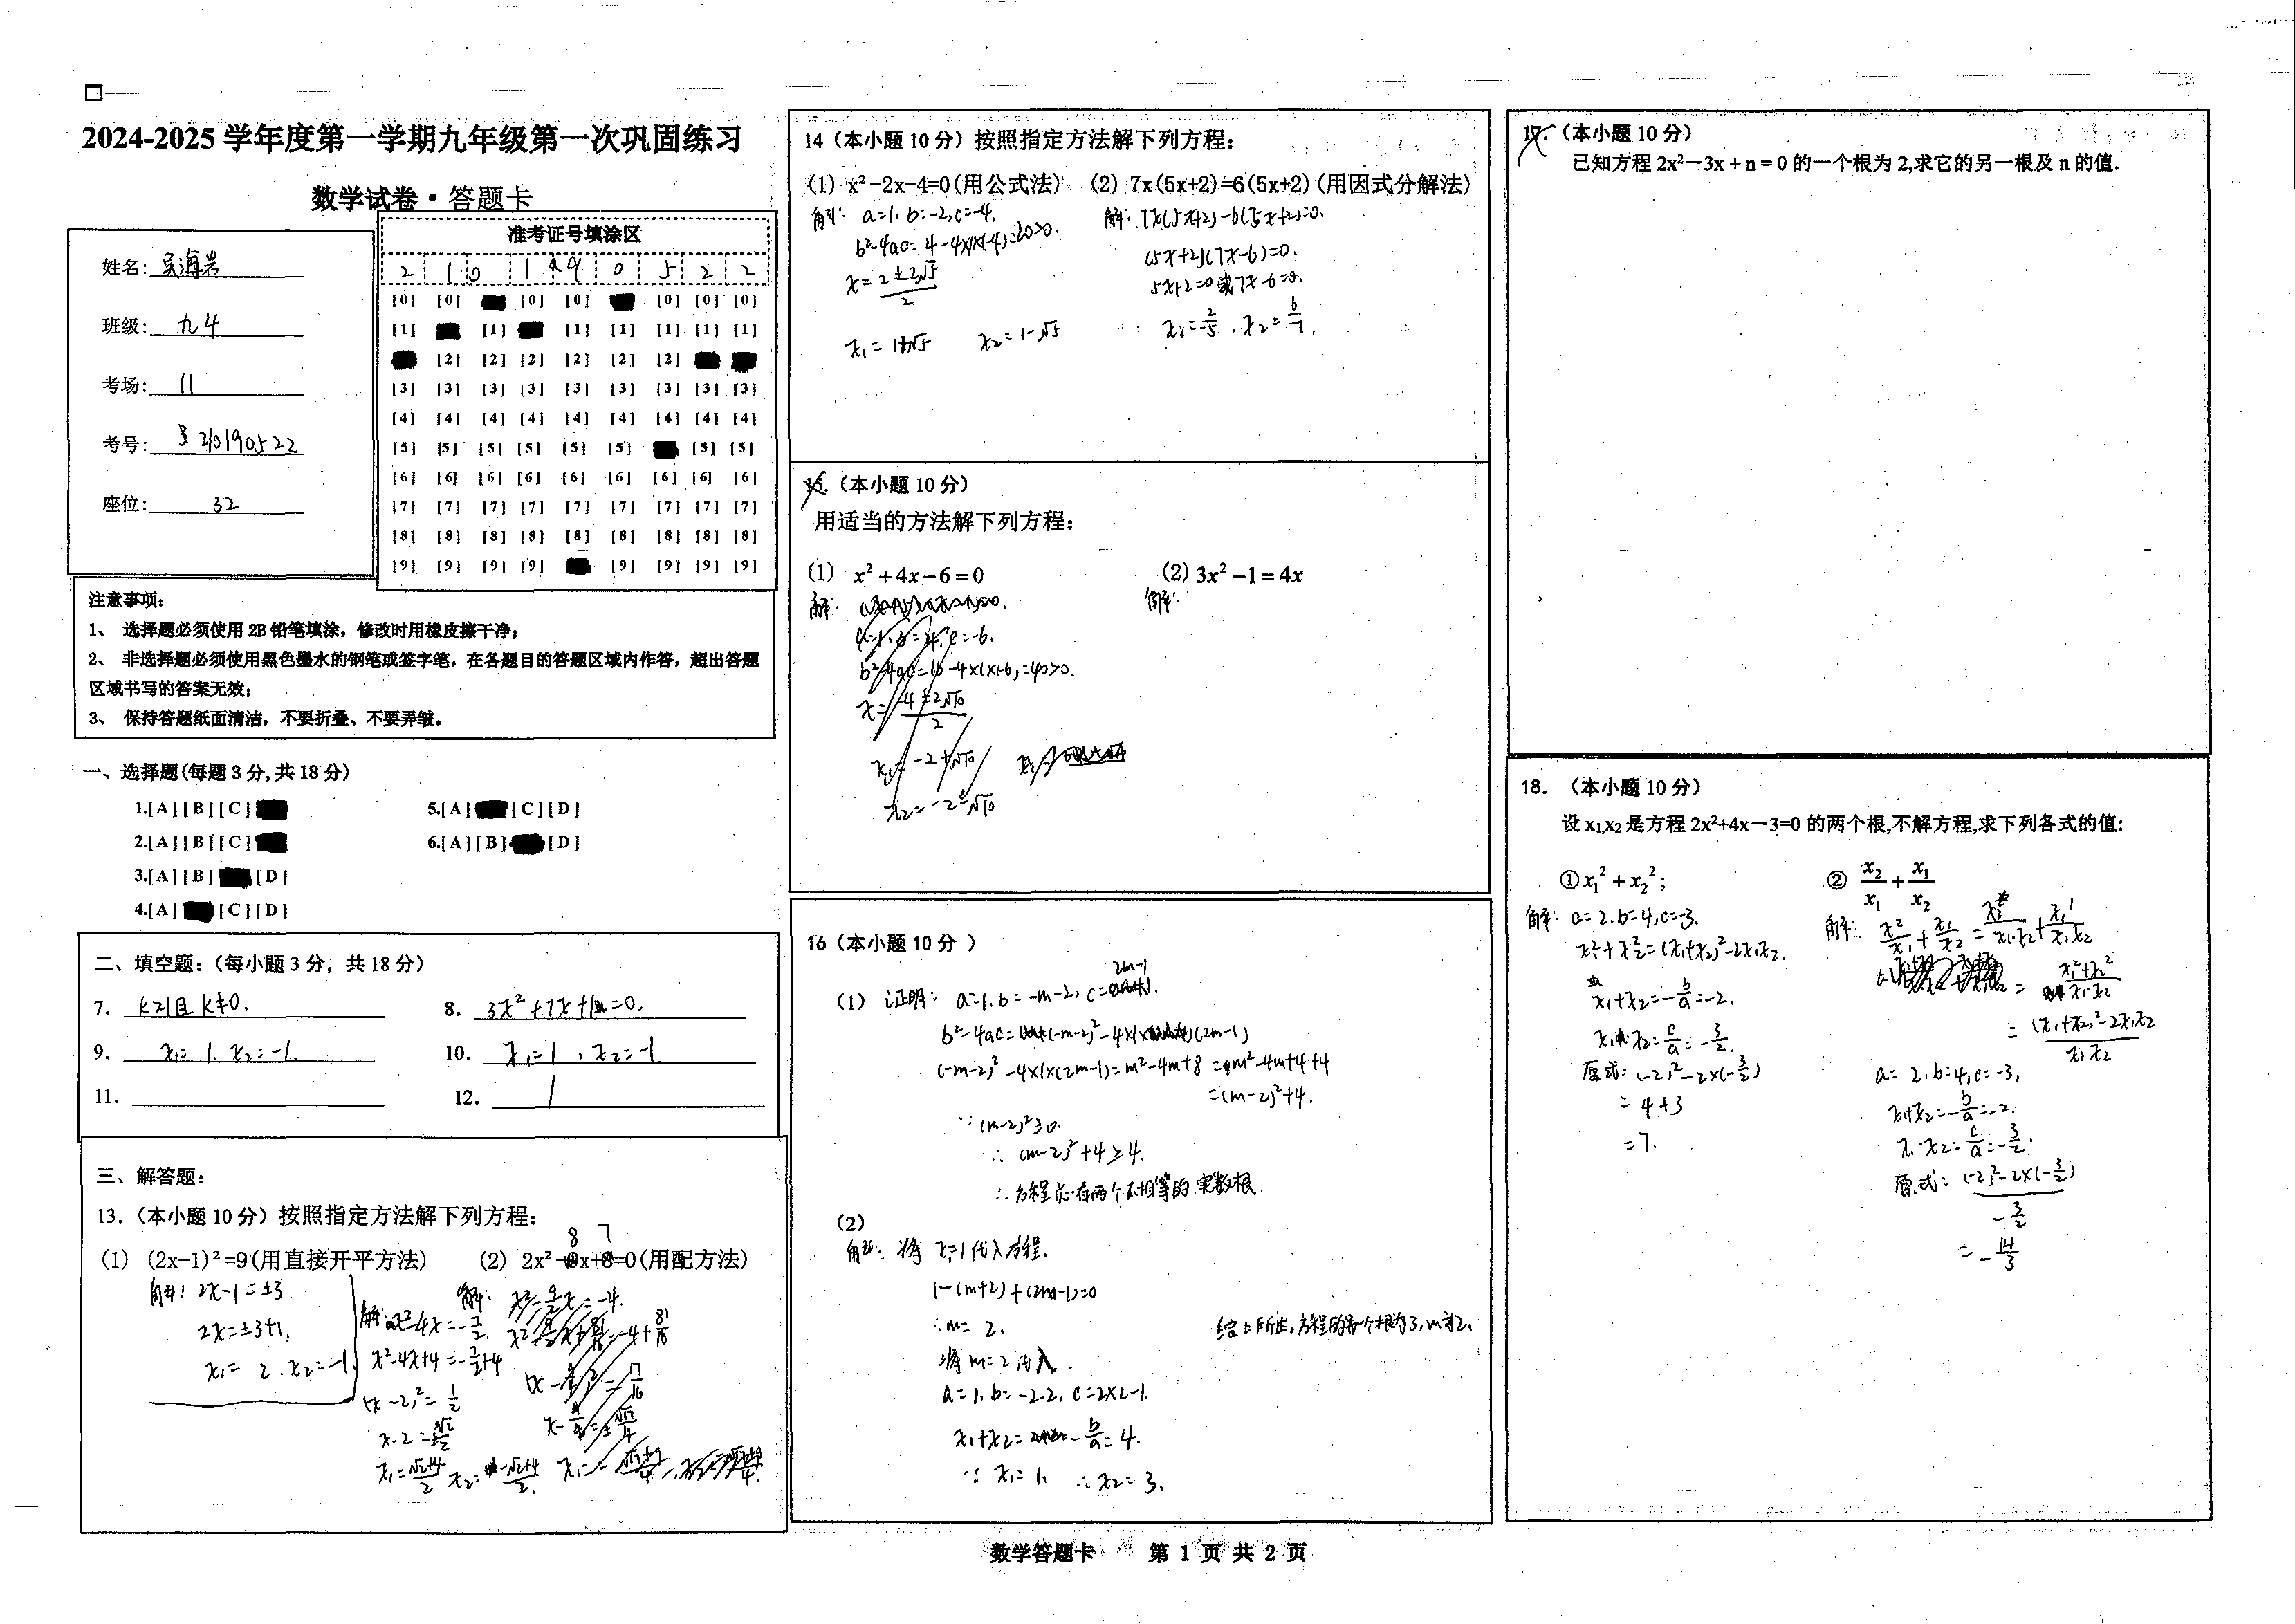 2024-2025 学年度第一学期九年级第一次巩固练习
数学试卷·答题卡
姓名: 吴海岩
班级: 九4
考场: 11
考号: 210190522
座位: 32
准考证号填涂区
2 1 0 1 9 0 5 2 2
[0] [0] [0] [0] [0] [0] [0]
[1] [1] [1] [1] [1] [1] [1]
[2] [2] [2] [2] [2] [2]
[3] [3] [3] [3] [3] [3] [3] [3] [3]
[4] [4] [4] [4] [4] [4] [4] [4] [4]
[5] [5] [5] [5] [5] [5] [5] [5]
[6] [6] [6] [6] [6] [6] [6] [6] [6]
[7] [7] [7] [7] [7] [7] [7] [7] [7]
[8] [8] [8] [8] [8] [8] [8] [8] [8]
[9] [9] [9] [9] [9] [9] [9] [9]
注意事项:
1、 选择题必须使用 2B 铅笔填涂，修改时用橡皮擦干净;
2、 非选择题必须使用黑色墨水的钢笔或签字笔，在各题目的答题区域内作答，超出答题
区域书写的答案无效;
3、 保持答题纸面清洁，不要折叠、不要弄皱。
一、选择题(每题 3 分,共 18 分)
1.[A][B][C]
2.[A][B][C]
3.[A][B] [D]
4.[A] [C][D]
5.[A] [C][D]
6.[A][B] [D]
二、填空题:（每小题 3 分，共 18 分）
7. k≥1且 k≠0.
8. 3x²+7x+1=0.
9. x₁=1. x₂=-1.
10. x₁=1, x₂=-1
11.
12. 1
三、解答题:
13.（本小题 10 分）按照指定方法解下列方程:
(1) (2x-1)²=9(用直接开平方法)
解: 2x-1=±3
2x=±3+1.
x₁= 2. x₂=-1
(2) 2x²-8x+7=0(用配方法)
解: x²-4x=-7/2.
x²-4x+4=-7/2+4
(x-2)²=1/2
x-2=±√2/2
x₁=(√2+4)/2 x₂=(-√2+4)/2.
14（本小题 10 分）按照指定方法解下列方程:
(1) x²-2x-4=0(用公式法)
解: a=1. b=-2, c=-4.
b²-4ac=4-4×1×(-4)=20>0.
x=(2±2√5)/2
x₁=1+√5 x₂=1-√5
(2) 7x(5x+2)=6(5x+2)(用因式分解法)
解: 7x(5x+2)-6(5x+2)=0.
(5x+2)(7x-6)=0.
5x+2=0或7x-6=0.
x₁=-2/5, x₂=6/7.
15.（本小题 10 分）
用适当的方法解下列方程:
(1) x²+4x-6=0
解:
a=1, b=4, c=-6.
b²-4ac=16-4×1×-6)=40>0.
x=(-4±2√10)/2
x₁=-2+√10
x₂=-2-√10
(2) 3x²-1=4x
解:
16（本小题 10 分 ）
(1) 证明: a=1. b=-m-2, c=2m-1
b²-4ac=(-m-2)²-4×1×(2m-1)
(-m-2)²-4×1×(2m-1)=m²-4m+8=m²-4m+4+4
=(m-2)²+4.
∵(m-2)²≥0.
∴(m-2)²+4≥4.
∴方程总有两个不相等的实数根.
(2)
解: 将 x=1代入方程.
1-(m+2)+(2m-1)=0
∴m= 2.
将m=2代入.
a=1. b=-2-2, c=2×2-1.
x₁+x₂=-b/a=4.
∵x₁=1. ∴x₂=3.
综上所述,方程的另个根为3, m为2.
17.（本小题 10 分）
已知方程 2x²－3x + n = 0 的一个根为 2,求它的另一根及 n 的值.
18.（本小题 10 分）
设 x₁,x₂ 是方程 2x²+4x－3=0 的两个根,不解方程,求下列各式的值:
①x₁²+x₂²;
解: a=2. b=4, c=-3.
x₁²+x₂²=(x₁+x₂)²-2x₁x₂.
x₁+x₂=-b/a=-2.
x₁·x₂=c/a=-3/2.
原式=(-2)²-2×(-3/2)
= 4+3
=7.
② x₂/x₁+x₁/x₂
解: x₂/x₁+x₁/x₂=x₂²/x₁x₂+x₁²/x₁x₂
=(x₁²+x₂²)/x₁x₂
=((x₁+x₂)²-2x₁x₂)/x₁x₂
a=2. b=4, c=-3,
x₁+x₂=-b/a=-2.
x₁·x₂=c/a=-3/2.
原式=((-2)²-2×(-3/2))/(-3/2)
=-14/3
数学答题卡 第 1 页 共 2 页